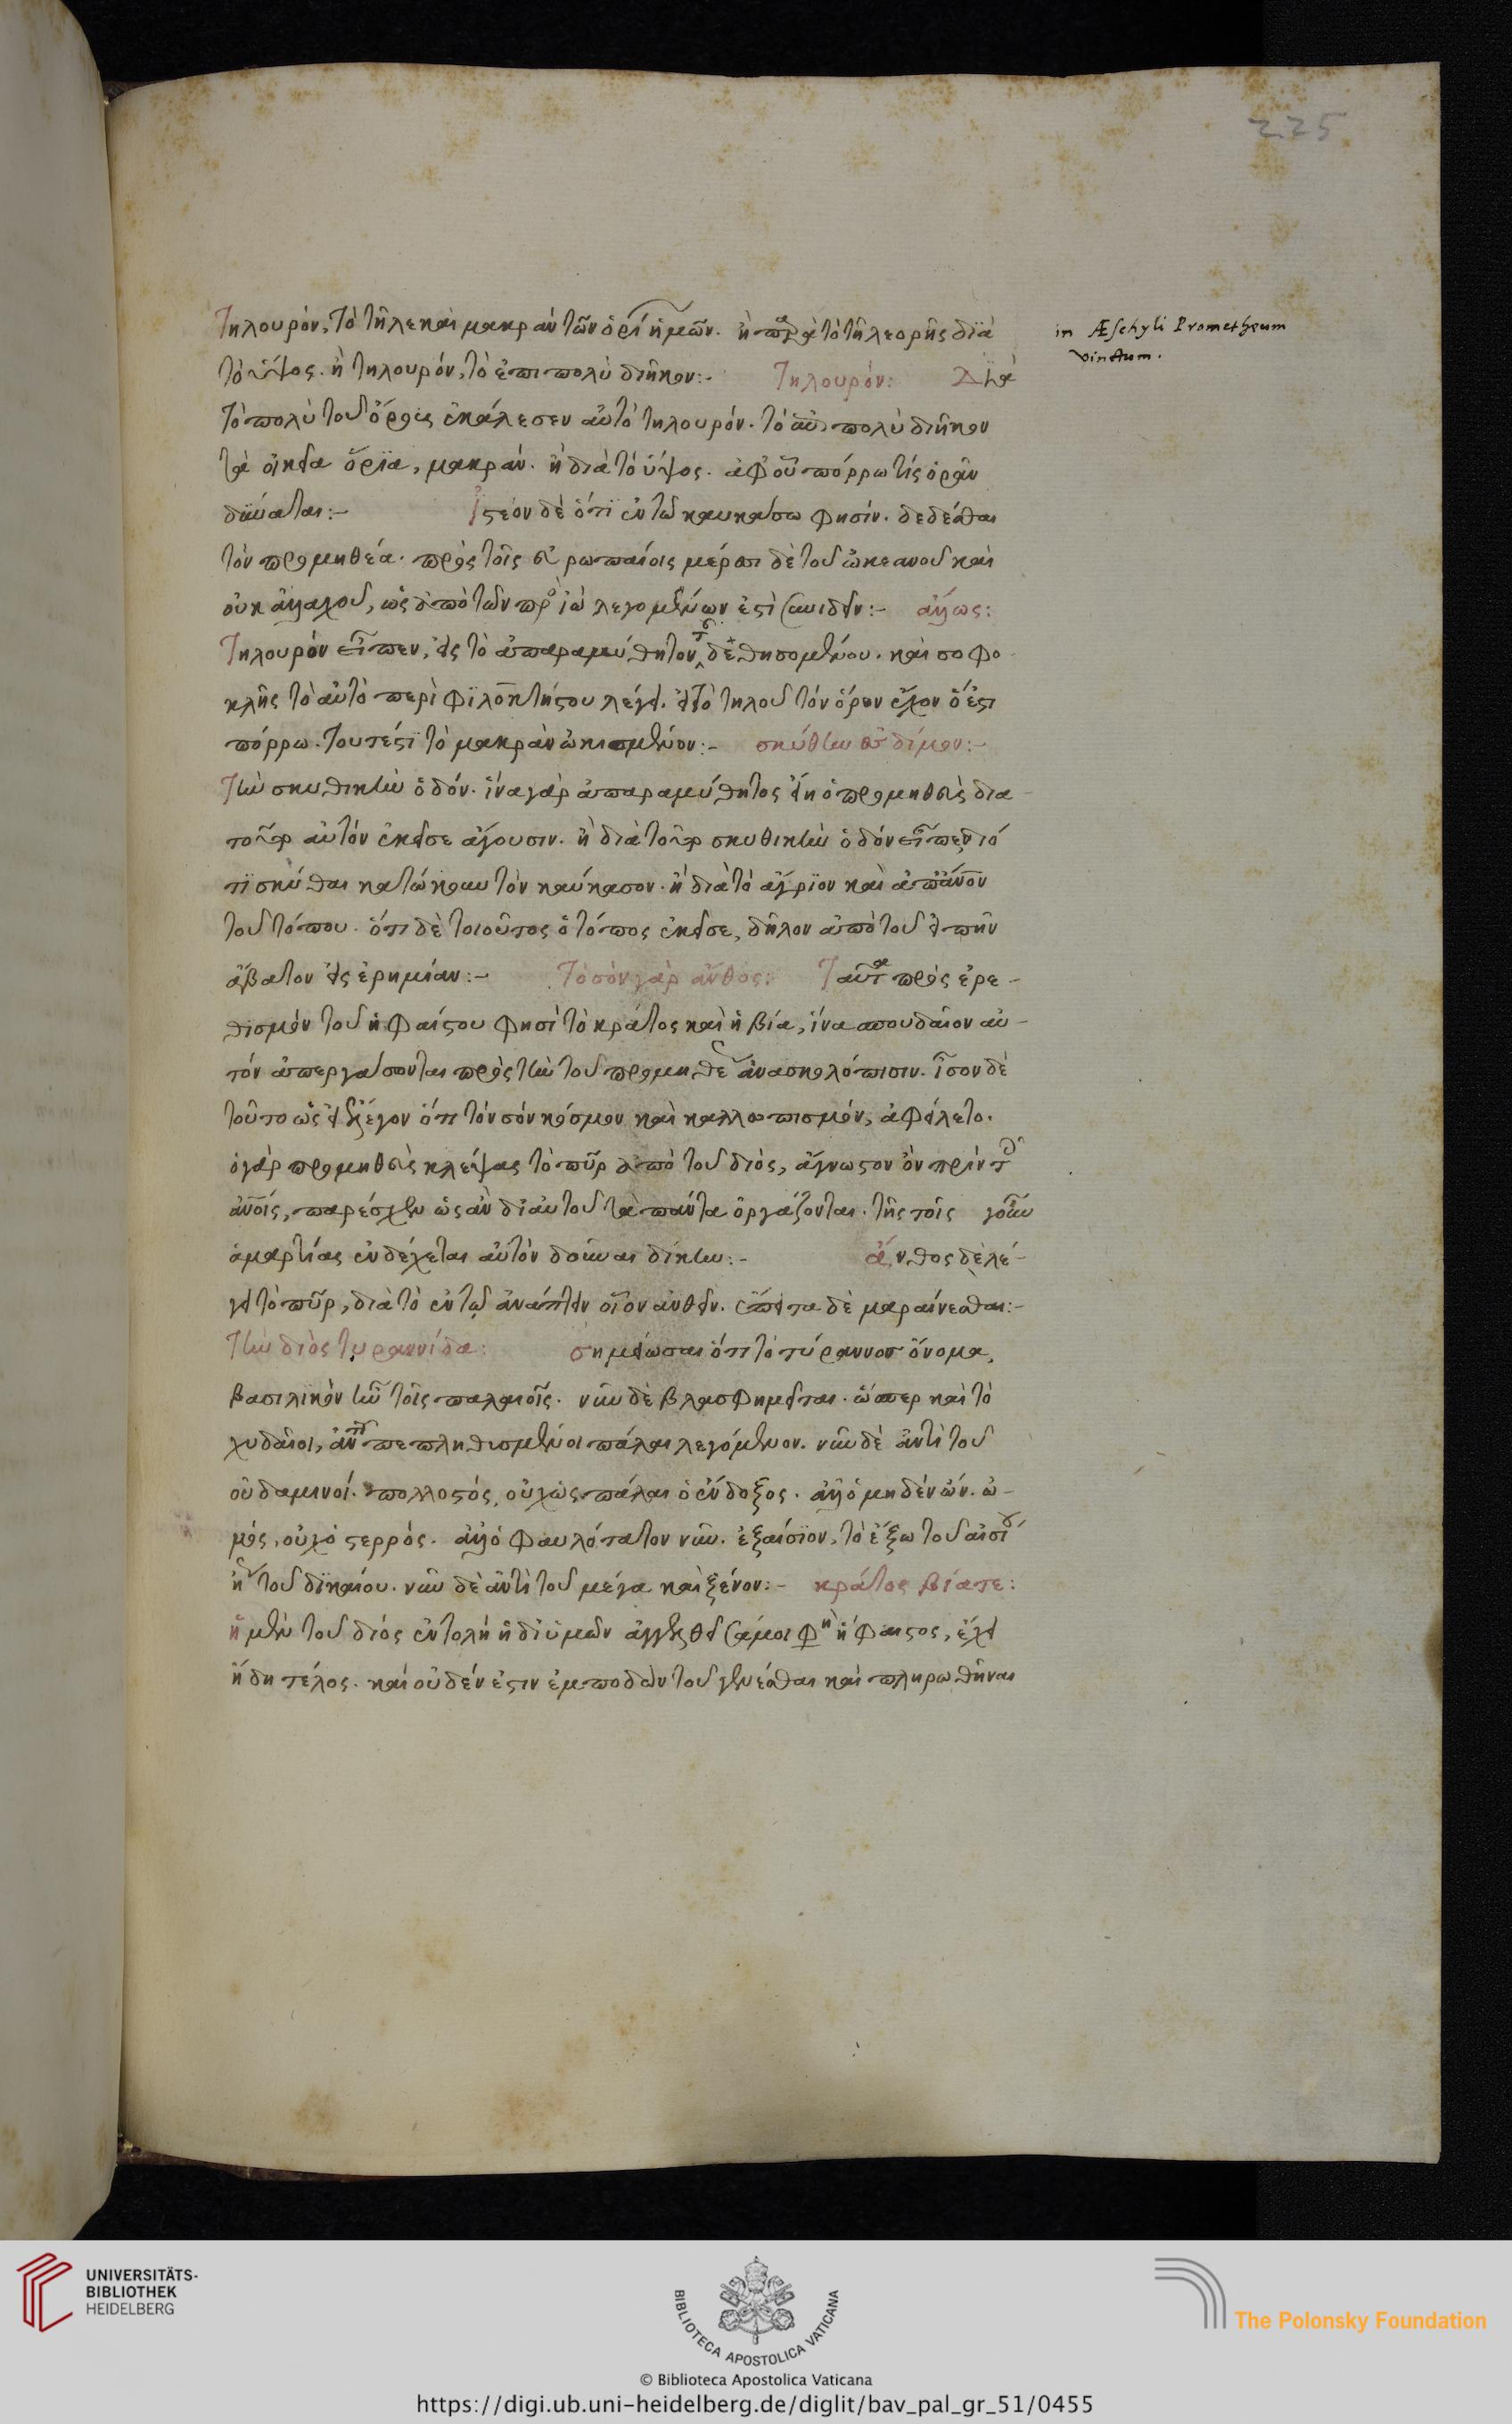 225
in Æschyli Prometheum
vinctum.
Τηλουρόν, τὸ τῆλε καὶ μακρὰν τῶν ὁρί ἡμῶν. ἢ παρὰ τὸ τῆλε ὁρῆς διὰ
τὸ ὕψος. ἢ τηλουρόν, τὸ ἐπιπολὺ διῆκον:- Τηλουρόν: Διὰ
τὸ πολὺ τοῦ ὄρους ἐκάλεσεν αὐτὸ τηλουρόν. τὸ πολὺ διῆκον
τὰ οἰκεῖα ὅρια, μακράν. ἢ διὰ τὸ ὕψος. ἀφ' οὗ πόρρω τίς ὁρᾶν
δύναται:- Ἰστέον δὲ ὅτι ἐν τῷ καυκάσω φησίν. δεδέσθαι
τὸν προμηθέα. πρὸς τοῖς εὐρωπαίοις μέρεσι δὲ τοῦ ὠκεανοῦ καὶ
οὐκ ἀλλαχοῦ, ὡς ἀπὸ τῶν πρὸς ἰὼ λεγομένων ἐστὶ συνιδεῖν:- ἄλλως:
Τηλουρὸν εἶπεν, εἰς τὸ ἀπαραμύθητον τοῦ δεθησομένου. καὶ σοφο
κλῆς τὸ αὐτὸ περὶ φιλοκτήτου λέγει. ἢ τὸ τηλοῦ τὸν ὅρον ἔχον ὅ ἐστι
πόρρω. τουτέστι τὸ μακρὰν ὠκισμένον:- σκύθην ἐς οἶμον:-
Τὴν σκυθικὴν ὁδόν. ἵνα γὰρ ἀπαραμύθητος εἴη ὁ προμηθεὺς δια
τοῦτο αὐτὸν ἐκεῖσε ἄγουσιν. ἢ διὰ τοῦτο σκυθικὴν ὁδὸν εἶπεν διό
τι σκύθαι κατώκουν τὸν καύκασον. ἢ διὰ τὸ ἄγριον καὶ ἀπάνον
τοῦ τόπου. ὅτι δὲ τοιοῦτος ὁ τόπος ἐκεῖσε, δῆλον ἀπὸ τοῦ εἰπεῖν
ἄβατον εἰς ἐρημίαν:- Τὸ σὸν γὰρ ἄνθος: Ταῦτα πρὸς ἐρε-
θισμὸν τοῦ ἡφαίστου φησὶ τὸ κράτος καὶ ἡ βία, ἵνα σπουδαῖον αὐ-
τὸν ἀπεργάσονται πρὸς τὴν τοῦ προμηθέως ἀνασκολόπισιν. ἴσον δὲ
τοῦτο ὡς εἰ ἔλεγον ὅτι τὸν σὸν κόσμον καὶ καλλωπισμόν, ἀφείλετο.
ὁ γὰρ προμηθεὺς κλέψας τὸ πῦρ ἀπὸ τοῦ διός, ἄγνωστον ὂν πρὶν τοῖς
ἀνοις, παρέσχεν ὡς ἂν δι' αὐτοῦ τὰ πάντα ἐργάζονται. τῆς τοῖς γοῦν
ἁμαρτίας ἐνδέχεται αὐτὸν δοῦναι δίκην:- ἄνθος δὲ λέ-
γει τὸ πῦρ, διὰ τὸ ἐν τῷ ἀνάπτειν οἷον ἀνθεῖν. ἔπειτα δὲ μαραίνεσθαι:-
Τὴν διὸς τυραννίδα: σημείωσαι ὅτι τὸ τύραννος ὄνομα,
βασιλικὸν ἦν τοῖς παλαιοῖς. νῦν δὲ βλασφημεῖται. ὥσπερ καὶ τὸ
χυδαῖοι, ἀντὶ τοῦ πεπληθυσμένοι πάλαι λεγόμενον. νῦν δὲ ἀντὶ τοῦ
οὐδαμινοί. πολλοστός, οὐχ ὡς πάλαι ὁ ἔνδοξος. ἀλλ' ὁ μηδὲν ὤν. ὠ-
μός, οὐχ ὁ στερρός. ἀλλ' ὁ φαυλότατον νῦν. ἐξαίσιον, τὸ ἔξω τοῦ αἰσίου
ἢ τοῦ δικαίου. νῦν δὲ ἀντὶ τοῦ μέγα καὶ ξένον:- κράτος βία τε:
ἡ μὲν τοῦ διὸς ἐντολὴ ἡ δι' ὑμῶν ἀγγελθεῖσά μοι φη ἥφαιστος, ἔχει
ἤδη τέλος. καὶ οὐδέν ἐστιν ἐμποδὼν τοῦ γενέσθαι καὶ πληρωθῆναι
UNIVERSITÄTS-
BIBLIOTHEK
HEIDELBERG
BIBLIOTECA APOSTOLICA VATICANA
The Polonsky Foundation
© Biblioteca Apostolica Vaticana
https://digi.ub.uni-heidelberg.de/diglit/bav_pal_gr_51/0455